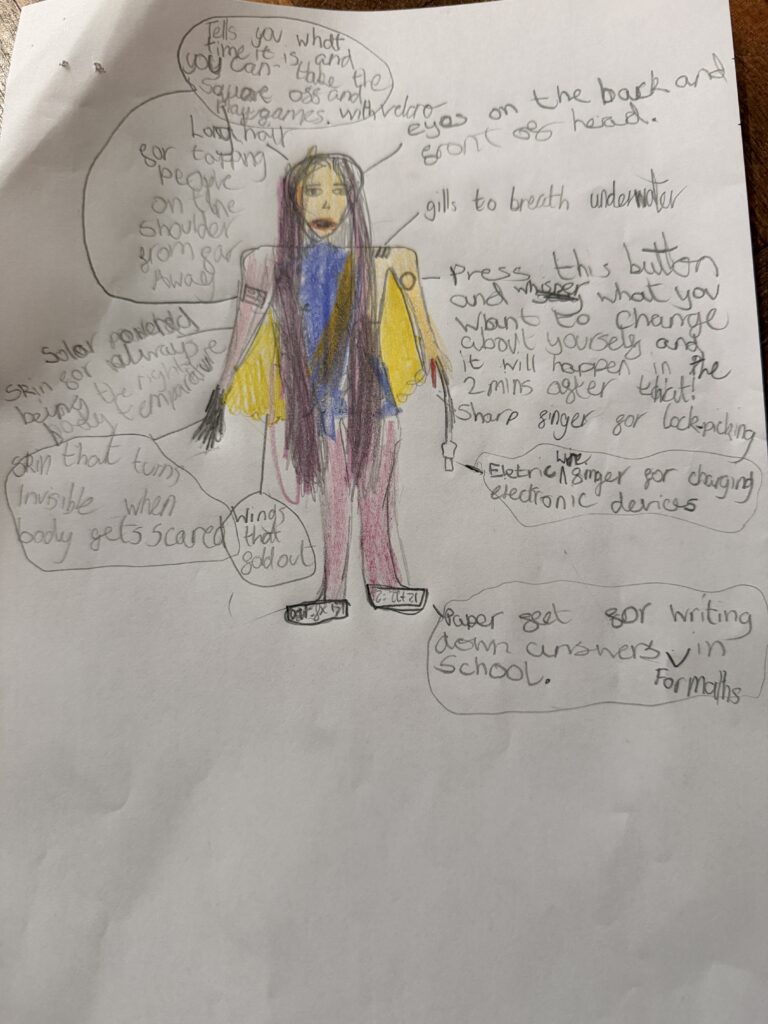 Tells you what
time it is and
you can take the
Square off and
Play games. with velcro
Long hair
for tapping
people
on the
shoulder
from far
Away
eyes on the back and
front of head.
gills to breath underwater
Press this button
and whisper what you
want to change
about yourself and
it will happen in the
2 mins after that!
Sharp finger for lockpicking
Solar powered
Skin for always
being the right
body temperature
Skin that turns
Invisible when
body gets scared
Wings
that
fold out
Eletric wire finger for charging
electronic devices
Paper feet for writing
down answers in
School.
For maths